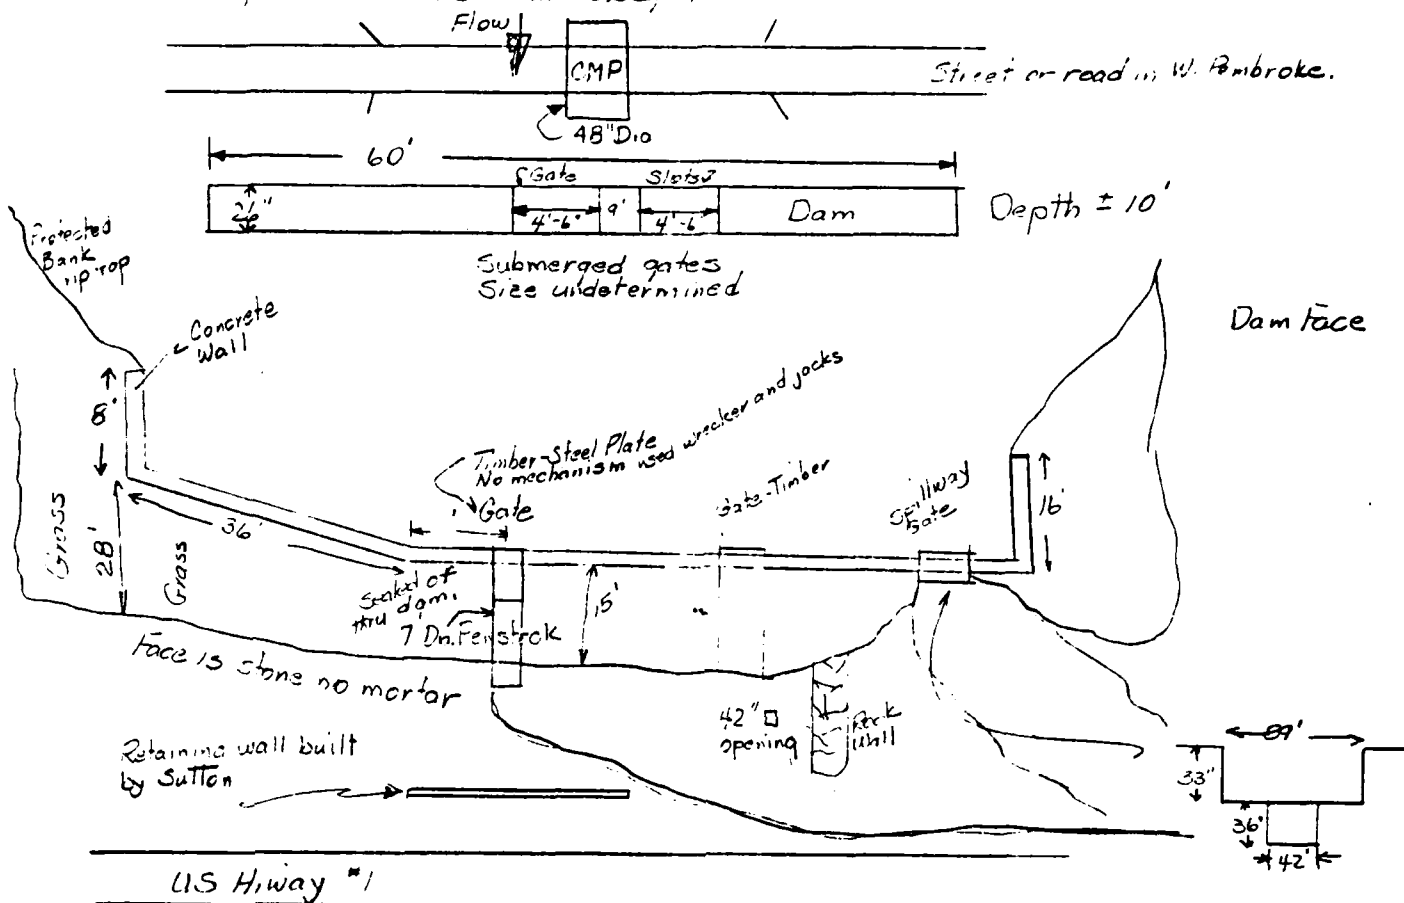 Flow
CMP
Street or road in W. Pembroke.
48" Dia
60'
Gate
Slots
4'-6"
9'
4'-6
Dam
Depth ± 10'
Submerged gates
Size undetermined
Protected
Bank
rip rap
Concrete
Wall
Dam Face
8'
Timber-Steel Plate
No mechanism used wrecker and jacks
Gate
Gate-Timber
Spillway
Gate
16'
Grass
28'
36'
Grass
thru dam.
15'
Face is stone no mortar
42" □
opening
Rock
Wall
Retaining wall built
by Sutton
33"
36'
42'
US Hiway #1